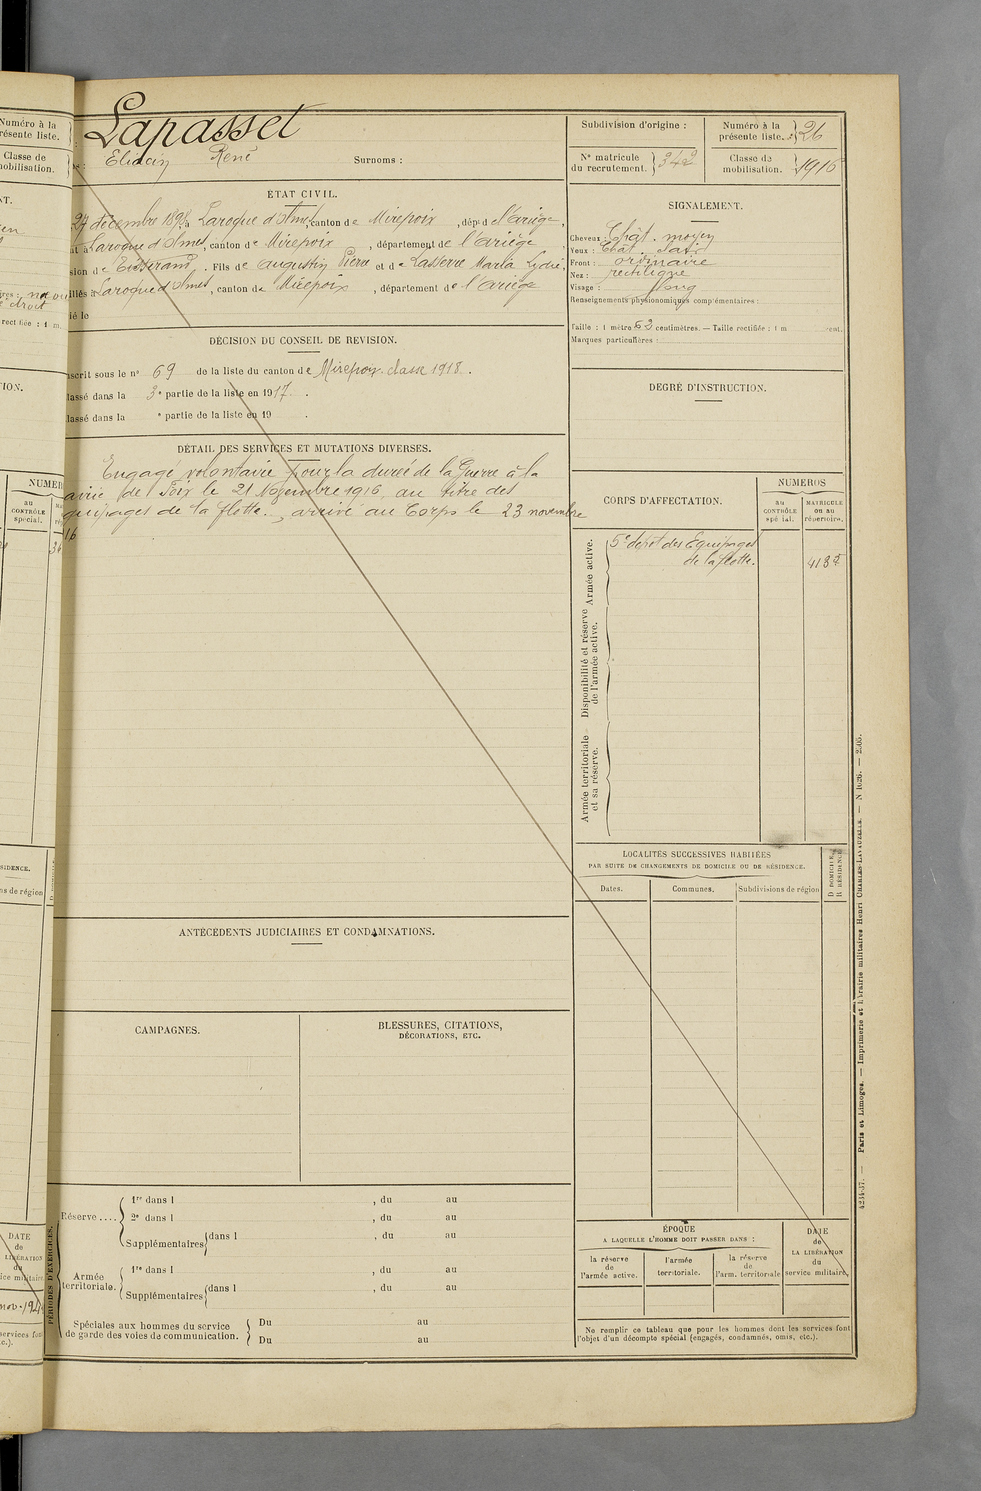 Numéro à la
résente liste.
Classe de
mobilisation.
Lapasset
René
Surnoms :
ÉTAT CIVIL.
27 décembre 1898, à Laroque d'Olmes, canton de Mirepoix, dépt de l'Ariège,
à Laroque d'Olmes, canton de Mirepoix, département de l'Ariège
sion de Tisserand. Fils de Augustin Pierre et de Lasserre Maria Lydie,
iliés à Laroque d'Olmes, canton de Mirepoix, département de l'Ariège
ié le
DÉCISION DU CONSEIL DE REVISION.
nscrit sous le n° 69 de la liste du canton de Mirepoix classe 1918.
lassé dans la 3e partie de la liste en 1917.
lassé dans la e partie de la liste en 19 .
DÉTAIL DES SERVICES ET MUTATIONS DIVERSES.
Engagé volontaire pour la durée de la Guerre à la
airie de Foix le 21 Novembre 1916, au titre des
quipages de la flotte., arrivé au Corps le 23 novembre
16.
ANTÉCÉDENTS JUDICIAIRES ET CONDAMNATIONS.
CAMPAGNES.
BLESSURES, CITATIONS,
DÉCORATIONS, ETC.
PÉRIODES D'EXERCICES.
Réserve ....
1re dans l , du au
2e dans l , du au
Supplémentaires dans l , du au
Armée
territoriale.
1re dans l , du au
Supplémentaires dans l , du au
Spéciales aux hommes du service
de garde des voies de communication.
Du au
Du au
Subdivision d'origine :
Numéro à la
présente liste. : 26
N° matricule
du recrutement. 342
Classe de
mobilisation. 1916
SIGNALEMENT.
Cheveux : Chât. moyen
Yeux : Chât.
Front : ordinaire
Nez : rectiligne
Visage : long
Renseignements physionomiques complémentaires :
Taille : 1 mètre 63 centimètres. — Taille rectifiée : 1 m cent.
Marques particulières :
DEGRÉ D'INSTRUCTION.
CORPS D'AFFECTATION.
NUMÉROS
au
CONTRÔLE
spécial.
MATRICULE
ou au
répertoire.
Armée active.
5e dépôt des Équipages
de la flotte.
Disponibilité et réserve
de l'armée active.
Armée territoriale
et sa réserve.
LOCALITÉS SUCCESSIVES HABITÉES
PAR SUITE DE CHANGEMENTS DE DOMICILE OU DE RÉSIDENCE.
Dates. Communes. Subdivisions de région
D DOMICILE.
R RÉSIDENCE.
ÉPOQUE
A LAQUELLE L'HOMME DOIT PASSER DANS :
la réserve
de
l'armée active.
l'armée
territoriale.
la réserve
de
l'arm. territoriale
DATE
de
LA LIBÉRATION
du
service militaire.
Ne remplir ce tableau que pour les hommes dont les services font
l'objet d'un décompte spécial (engagés, condamnés, omis, etc.).
Paris et Limoges. — Imprimerie et librairie militaires Henri CHARLES-LAVAUZELLE.